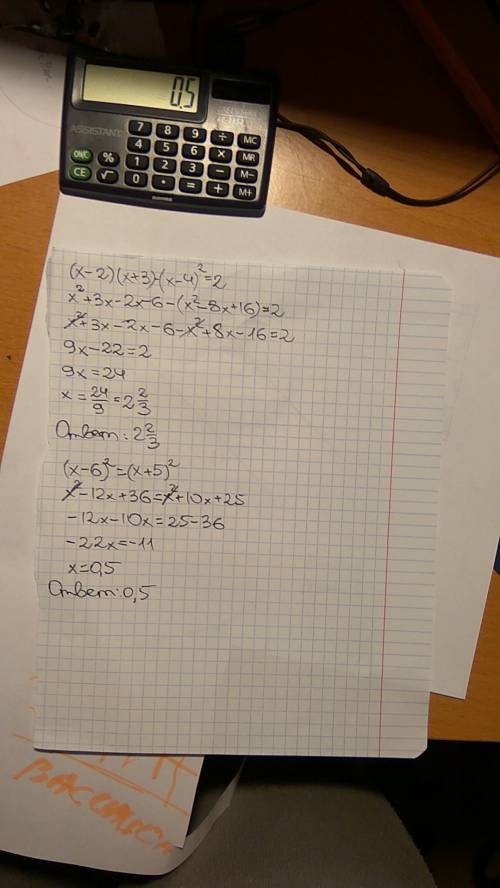 0.5
ASSISTANT
7 8 9 ÷ MC
4 5 6 × MR
ON/C % 1 2 3 − M−
CE √ 0 . = + M+
(x-2)(x+3)-(x-4)²=2
x²+3x-2x-6-(x²-8x+16)=2
x²+3x-2x-6-x²+8x-16=2
9x-22=2
9x=24
x=24/9=2 2/3
Ответ: 2 2/3
(x-6)²=(x+5)²
x²-12x+36=x²+10x+25
-12x-10x=25-36
-22x=-11
x=0,5
Ответ: 0,5